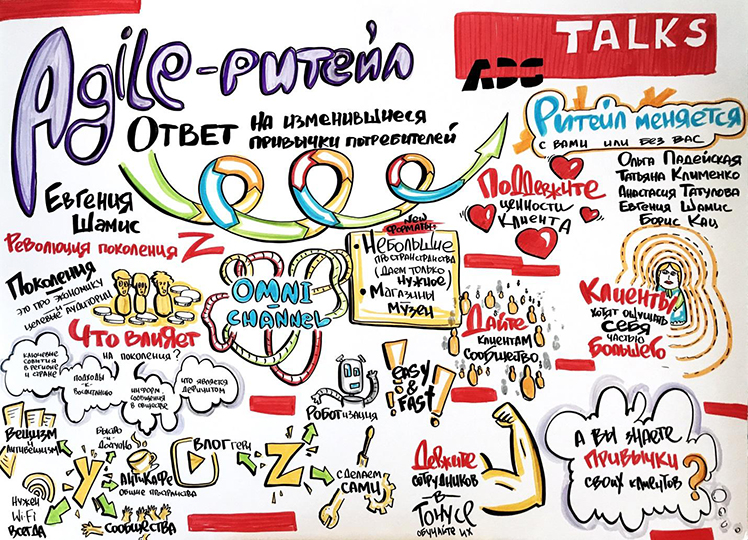 Agile-ритейл
Ответ на изменившиеся
привычки потребителей
TALKS
ADG
Ритейл меняется
с вами или без вас
Ольга Падейская
Татьяна Клименко
Анастасия Татулова
Евгения Шамис
Борис Кац
Евгения
Шамис
Революция поколения Z
Поддержите
ценности
клиента
New
форматы
• Небольшие
пространства
(Даем только
нужное)
• Магазины
музеи
OMNI-
CHANNEL
Поколения
это про экономику
целевые аудитории
Что влияет
на поколения?
ключевые
события
в регионе
и стране
подходы
к
воспитанию
информ
сообщения
в обществе
что является
дефицитом
Дайте
клиентам
сообщество
Клиенты
хотят ощущать
себя
частью
большего
Роботизация
!easy
&
fast!
Вещизм
и
антивещизм
Y
Нужен
Wi-Fi
всегда
АнтиКафе
Сообщества
Блоггеры
Z
сделаем
сами
Держите
сотрудников
в
тонусе
обучайте их
А вы знаете
привычки
своих клиентов
?